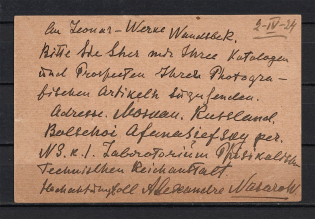 2-IV-24
An Leonar-Werke Wandsbek.
Bitte Sie Sher mir Ihre Katalogen
und Prospecten Ihrer Photogra-
fischen Artikeln zuzusenden.
Adresse. Moskau. Russland.
Bolschoi Afanasiefsky per.
N3. k. 1. Laboratorium Physikalischen
Technischen Reichanstalt
Hochachtungsvoll Alexandre Nasaroff